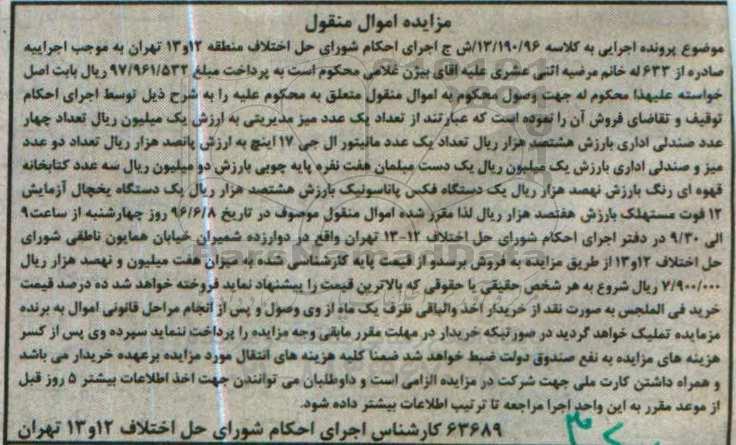 مزایده اموال منقول
موضوع پرونده اجرایی به کلاسه ۱۳/۱۹۰/۹۶/ش ج اجرای احکام شورای حل اختلاف منطقه ۱۲و۱۳ تهران به موجب اجراییه
صادره از ۶۳۳ له خانم مرضیه اثنی عشری علیه اقای بیژن غلامی محکوم است به پرداخت مبلغ ۹۷/۹۶۱/۵۳۲ ریال بابت اصل
خواسته علیهذا محکوم له جهت وصول محکوم به اموال منقول متعلق به محکوم علیه را به شرح ذیل توسط اجرای احکام
توقیف و تقاضای فروش آن را نموده است که عبارتند از تعداد یک عدد میز مدیریتی به ارزش یک میلیون ریال تعداد چهار
عدد صندلی اداری بارزش هشتصد هزار ریال تعداد یک عدد مانیتور ال جی ۱۷ اینچ به ارزش پانصد هزار ریال تعداد دو عدد
میز و صندلی اداری بارزش یک میلیون ریال یک دست مبلمان هفت نفره پایه چوبی بارزش دو میلیون ریال سه عدد کتابخانه
قهوه ای رنگ بارزش نهصد هزار ریال یک دستگاه فکس پاناسونیک بارزش هشتصد هزار ریال یک دستگاه یخچال آزمایش
۱۲ فوت مستهلک بارزش هفتصد هزار ریال لذا مقرر شده اموال منقول موصوف در تاریخ ۹۶/۶/۸ روز چهارشنبه از ساعت۹
الی ۹/۳۰ در دفتر اجرای احکام شورای حل اختلاف ۱۲-۱۳ تهران واقع در دوازرده شمیران خیابان همایون ناطقی شورای
حل اختلاف ۱۲و۱۳ از طریق مزایده به فروش برسدو از قیمت پایه کارشناسی شده به میزان هفت میلیون و نهصد هزار ریال
۷/۹۰۰/۰۰۰ ریال شروع به هر شخص حقیقی یا حقوقی که بالاترین قیمت را پیشنهاد نماید فروخته خواهد شد ده درصد قیمت
خرید فی الملجس به صورت نقد از خریدار اخذ والباقی ظرف یک ماه از وی وصول و پس از انجام مراحل قانونی اموال به برنده
مزمایده تملیک خواهد گردید در صورتیکه خریدار در مهلت مقرر مابقی وجه مزایده را پرداخت ننماید سپرده وی پس از کسر
هزینه های مزایده به نفع صندوق دولت ضبط خواهد شد ضمنا کلیه هزینه های انتقال مورد مزایده برعهده خریدار می باشد
و همراه داشتن کارت ملی جهت شرکت در مزایده الزامی است و داوطلبان می توانندن جهت اخذ اطلاعات بیشتر ۵ روز قبل
از موعد مقرر به این واحد اجرا مراجعه تا ترتیب اطلاعات بیشتر داده شود.
۶۳۶۸۹ کارشناس اجرای احکام شورای حل اختلاف ۱۲و۱۳ تهران